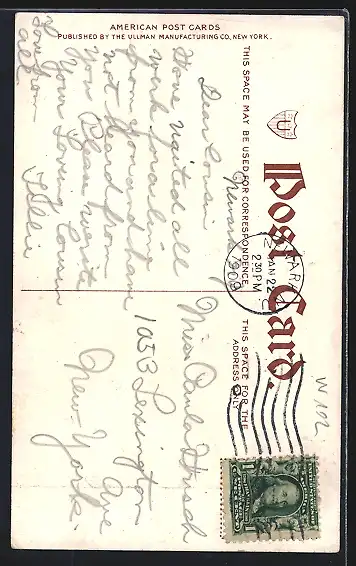 AMERICAN POST CARDS
PUBLISHED BY THE ULLMAN MANUFACTURING CO, NEW YORK.
U
Post Card.
THIS SPACE MAY BE USED FOR CORRESPONDENCE.
THIS SPACE FOR THE
ADDRESS ONLY
JAN 22
2 30 PM
1909
W 102
Newark
Dear Cousin
Have waited all
week for a line
from you and have
not heard from
you Please write
Your Loving Cousin
Tillie
Love from
all
Miss Paula Hirsch
1033 Lexington
Ave
New-York.
1